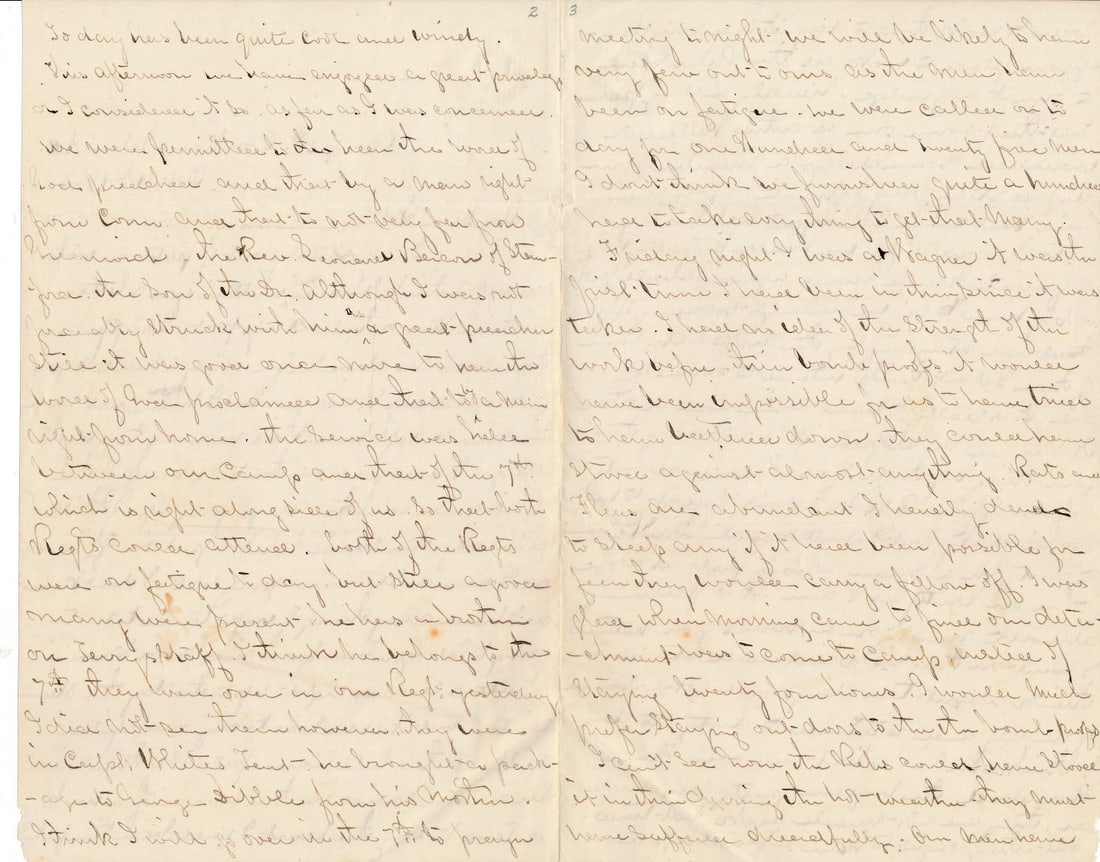 2
To day has been quite cool and windy.
This afternoon we have enjoyed a great privelege
or I considered it so. as far as I was concerned.
we were permitted to hear the word of
God preached and that by a man right
from Conn. and that to not very far from
Greenwich. The Rev. Leonard Bacon of Stam-
ford. the Son of the Dr. Although I was not
favorably Struck with him as a great preacher
Still it was good once more to hear the
word of God proclaimed and that to by a man
right from home. the Service was helld
between our Camp and that of the 7th.
which is right along side of us. So that both
Regts could attend. both of the Regts
were on fatigue to day but still a good
many were present. he has a brother
on Terrys Staff. I think he belongs to the
7th they were over in our Regt. yesterday
I did not see them however. they were
in Capt. Whites Tent. he brought a pack-
-age to George Dibble from his Mother.
I think I will go over in the 7th. to prayer
3
meeting to night. we will be likely to have
very few out to ours. as the men have
been on fatigue. we were called on to
day for one Hundred and twenty five men
I dont think we furnished quite a hundred
had to take everything to get that Many.
Friday night I was at Wagner it was the
first time I had been in there since it was
taken. I had no idea of the Strength of the
work before. their bomb proofs it would
have been impossible for us to have tried
to have battered down. they could have
stood against almost anything. Rats and
Fleas are abundant I hardly dared
to sleep any if it had been possible for
fear they would carry a fellow off. I was
glad when morning came to find our deta-
-chment was to come to Camp instead of
Staying twenty four hours. I would much
prefer Staying out doors to the bomb proofs
I can't See how the Rebs could have Stood
it in their during the hot weather they must
have suffered dreadfully. Our men have